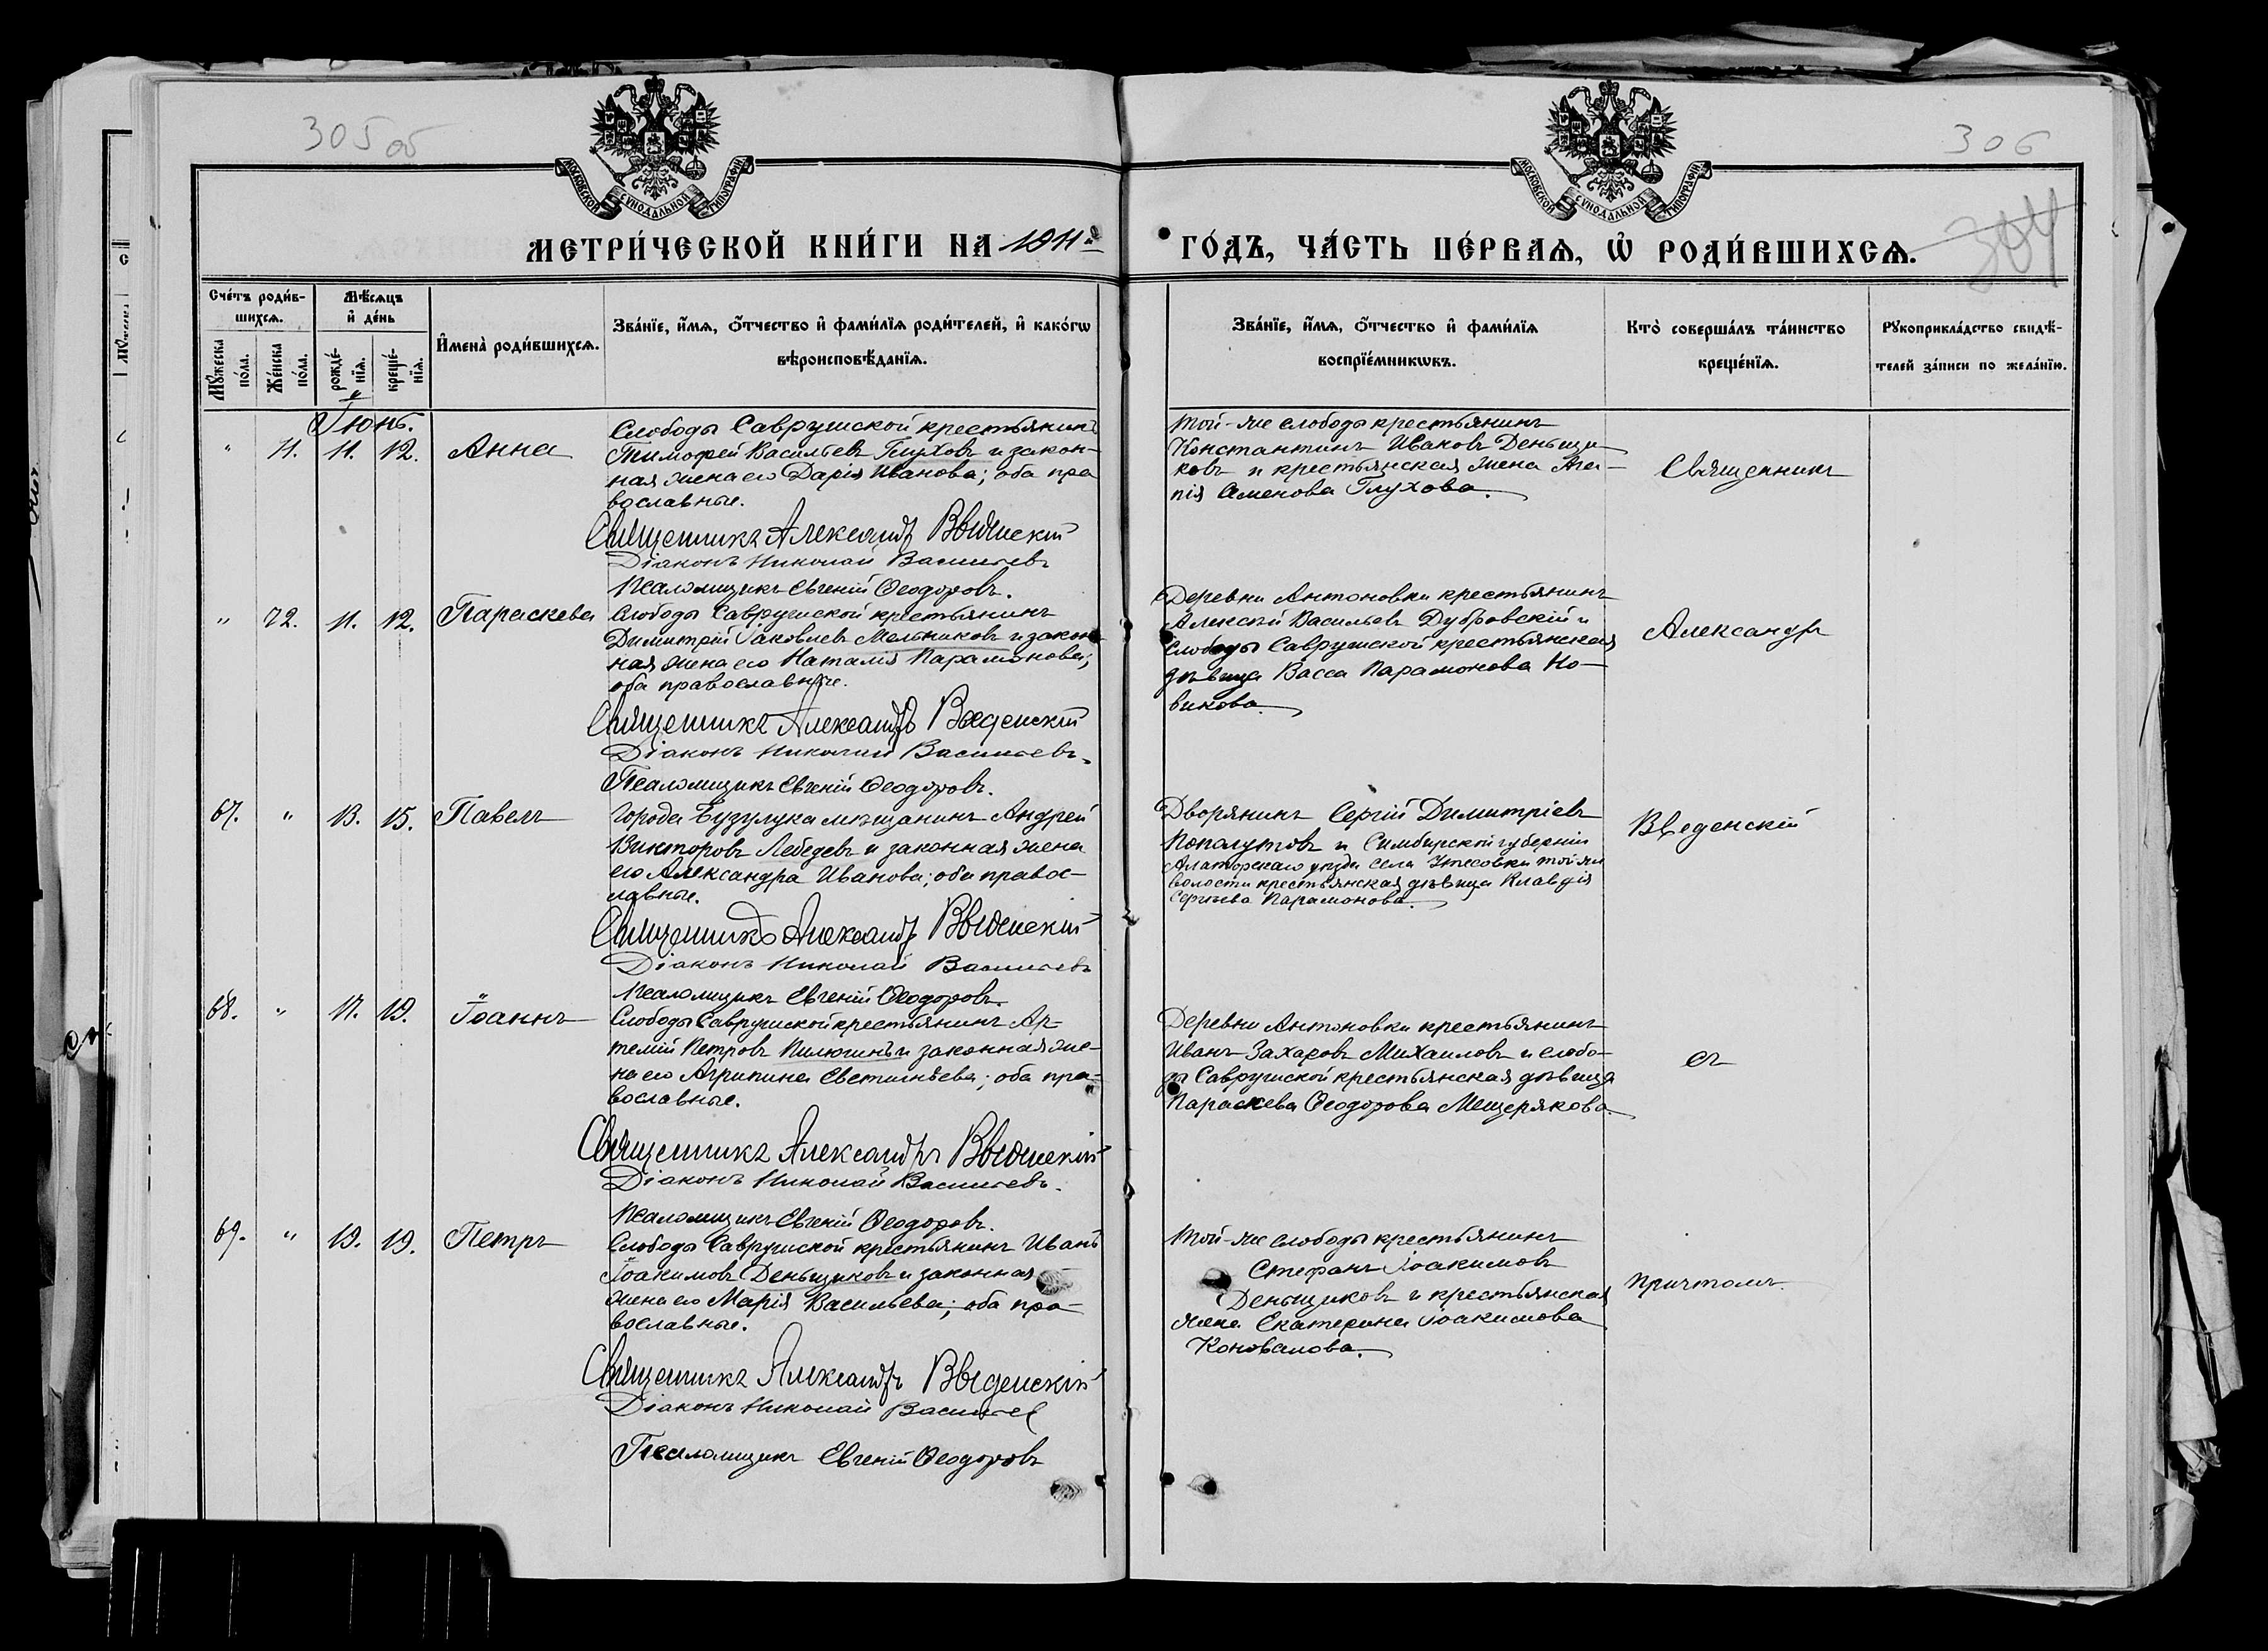 305 об
306
304
МОСКОВСКОЙ СѴНОДАЛЬНОЙ ТИПОГРАФІИ
МОСКОВСКОЙ СѴНОДАЛЬНОЙ ТИПОГРАФІИ
МЕТРИ́ЧЕСКОЙ КНИ́ГИ НА 1911й
ГО́ДЪ, ЧА́СТЬ ПЕ́РВАѦ, Ѡ҆ РОДИ́ВШИХСѦ.
Сче́тъ роди́в-
шихсѧ.
Мꙋ́жеска по́ла.
Же́нска по́ла.
Мѣ́сѧцъ
и҆ де́нь
рожде́-
нїѧ.
креще́-
нїѧ.
И҆мена̀ роди́вшихсѧ.
Зва́нїе, и҆́мѧ, ѻ҆́тчество и҆ фами́лїѧ роди́телей, и҆ како́гѡ
вѣроисповѣ́данїѧ.
Зва́нїе, и҆́мѧ, ѻ҆́тчество и҆ фами́лїѧ
воспрїе́мникѡвъ.
Кто̀ соверша́лъ та́инство
креще́нїѧ.
Рꙋкоприкла́дство свидѣ́-
телей за́писи по жела́нїю.
Іюнь.
" 71. 11. 12. Анна
Слободы Саврушской крестьянинъ
Тимофей Васильевъ Глуховъ и закон-
ная жена его Дарія Иванова; оба пра
вославные.
Священникъ Александръ Введенскій
Діаконъ Николай Васильевъ
Псаломщикъ Евгеній Ѳеодоровъ.
Той-же слободы крестьянинъ
Константинъ Иваковъ Деньщи-
ковъ и крестьянская жена Ага-
пія Семенова Глухова.
Священникъ
" 72. 11. 12. Параскева
Слободы Саврушской крестьянинъ
Димитрій Іаковлевъ Мельниковъ и закон-
ная жена его Наталія Парамонова;
оба православные.
Священникъ Александръ Введенскій
Діаконъ Николай Васильевъ.
Псаломщикъ Евгеній Ѳеодоровъ.
Деревни Антоновки крестьянинъ
Алексѣй Васильевъ Дубровскій и
слободы Саврушской крестьянская
дѣвица Васса Парамонова Но-
викова.
Александръ
67. " 13. 15. Павелъ
Города Бузулука мѣщанинъ Андрей
Викторовъ Лебедевъ и законная жена
его Александра Иванова; оба правос-
лавные.
Священникъ Александръ Введенскій
Діаконъ Николай Васильевъ
Псаломщикъ Евгеній Ѳеодоровъ.
Дворянинъ Сергій Димитріевъ
Пополутовъ и Симбирской губерніи
Алаторскаго уѣзда села Утесовки той же
волости крестьянская дѣвица Клавдія
Сергѣева Парамонова.
Введенскій
68. " 17. 19. Іоаннъ
Слободы Саврушской крестьянинъ Ар-
темій Петровъ Пилюгинъ и законная же-
на его Агрипина Евстигнѣева; оба пра-
вославные.
Священникъ Александръ Введенскій
Діаконъ Николай Васильевъ.
Псаломщикъ Евгеній Ѳеодоровъ.
Деревни Антоновки крестьянинъ
Иванъ Захаровъ Михаиловъ и слобо-
ды Саврушской крестьянская дѣвица
Параскева Ѳеодорова Мещерякова.
съ
69. " 19. 19. Петръ
Слободы Саврушской крестьянинъ Иванъ
Іоакимовъ Деньщиковъ и законная
жена его Марія Васильева; оба пра-
вославные.
Священникъ Александръ Введенскій
Діаконъ Николай Васильев
Псаломщикъ Евгеній Ѳеодоровъ
Той-же слободы крестьянинъ
Стефанъ Іоакимовъ
Деньщиковъ и крестьянская
жена Екатерина Іоакимова
Коновалова.
Причтомъ.